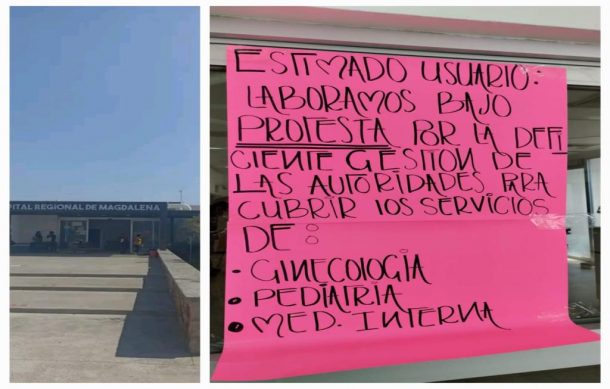 PITAL REGIONAL DE MAGDALENA
ESTIMADO USUARIO:
LABORAMOS BAJO
PROTESTA POR LA DEFI
CIENTE GESTION DE
LAS AUTORIDADES PARA
CUBRIR LOS SERVICIOS
DE:
• GINECOLOGIA
• PEDIATRIA
• MED. INTERNA